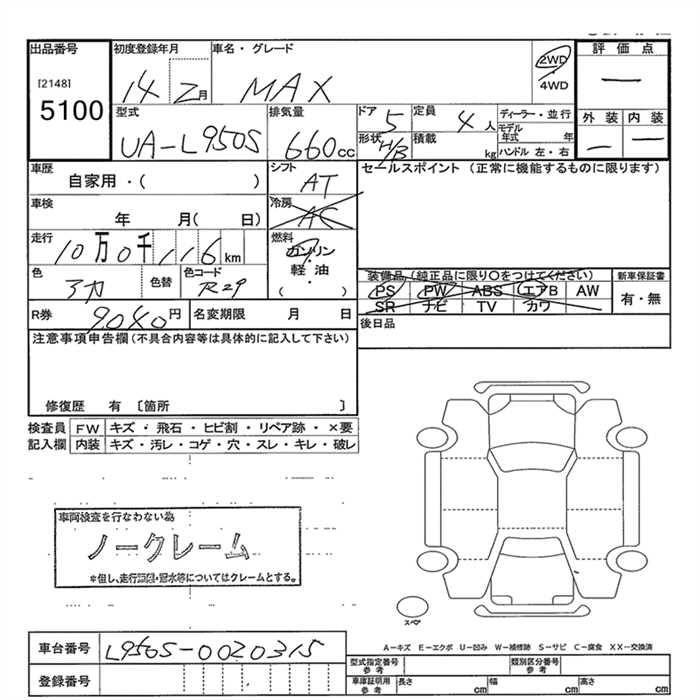 出品番号 初度登録年月 車名・グレード 評価点
[2148] 14 2月 MAX 2WD 4WD —
5100
型式 排気量 ドア 5 定員 4人 ディーラー・並行 外装 内装
UA-L950S 660cc 形状 H/B 積載 kg モデル年式 年 — —
ハンドル 左・右
車歴 シフト セールスポイント (正常に機能するものに限ります)
自家用・( ) AT
車検 冷房
年 月( 日) AC
走行 燃料
10万0千116km ガソリン
軽・油
・
( )
色 色替 色コード 装備品(純正品に限り○をつけてください) 新車保証書
アカ R29 PS PW ABS エアB AW 有・無
R券 9040円 名変期限 月 日 SR ナビ TV カワ
注意事項申告欄(不具合内容等は具体的に記入して下さい) 後日品
修復歴 有 〔箇所 〕
検査員 FW キズ・飛石・ヒビ割・リペア跡・×要
記入欄 内装 キズ・汚レ・コゲ・穴・スレ・キレ・破レ
車両検査を行なわない為
ノークレーム
*但し、走行・冠水等についてはクレームとする。
スペア
車台番号 L950S-0020315
A－キズ E－エクボ U－凹み W－補修跡 S－サビ C－腐食 XX－交換済
登録番号
型式指定番号 参考 類別区分番号 参考
車庫証明用 参考 長さ cm 幅 cm 高さ cm